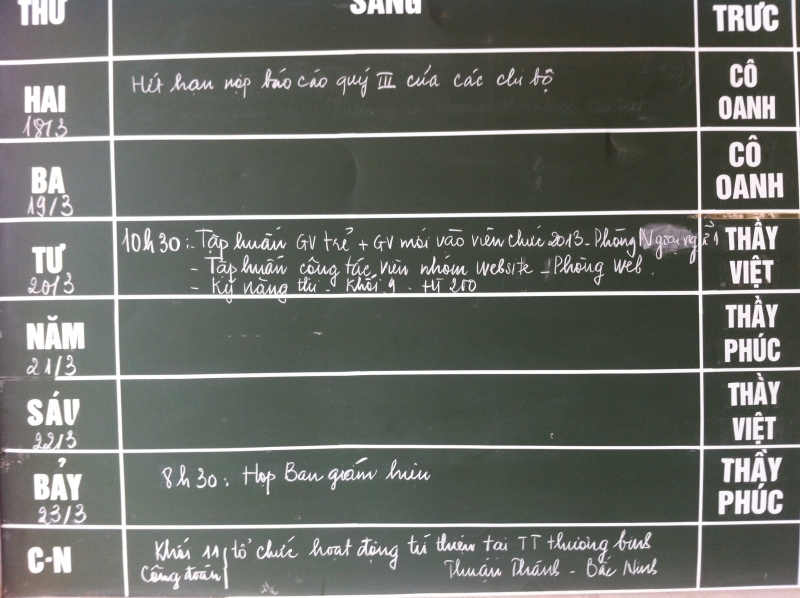 THỨ SÁNG TRỰC
HAI 18/3 Hết hạn nộp báo cáo quý III của các chi bộ CÔ OANH
BA 19/3 CÔ OANH
TƯ 20/3 10h30: - Tập huấn GV trẻ + GV mới vào viên chức 2013 - Phòng Ngoại ngữ 1 THẦY VIỆT
- Tập huấn công tác viên nhóm website - Phòng Web.
- Kỹ năng thi - Khối 9 - HT 200
NĂM 21/3 THẦY PHÚC
SÁU 22/3 THẦY VIỆT
BẢY 23/3 8h30: Họp Ban giám hiệu THẦY PHÚC
C-N Khối 11 tổ chức hoạt động từ thiện tại TT thương binh
Công đoàn Thuận Thành - Bắc Ninh